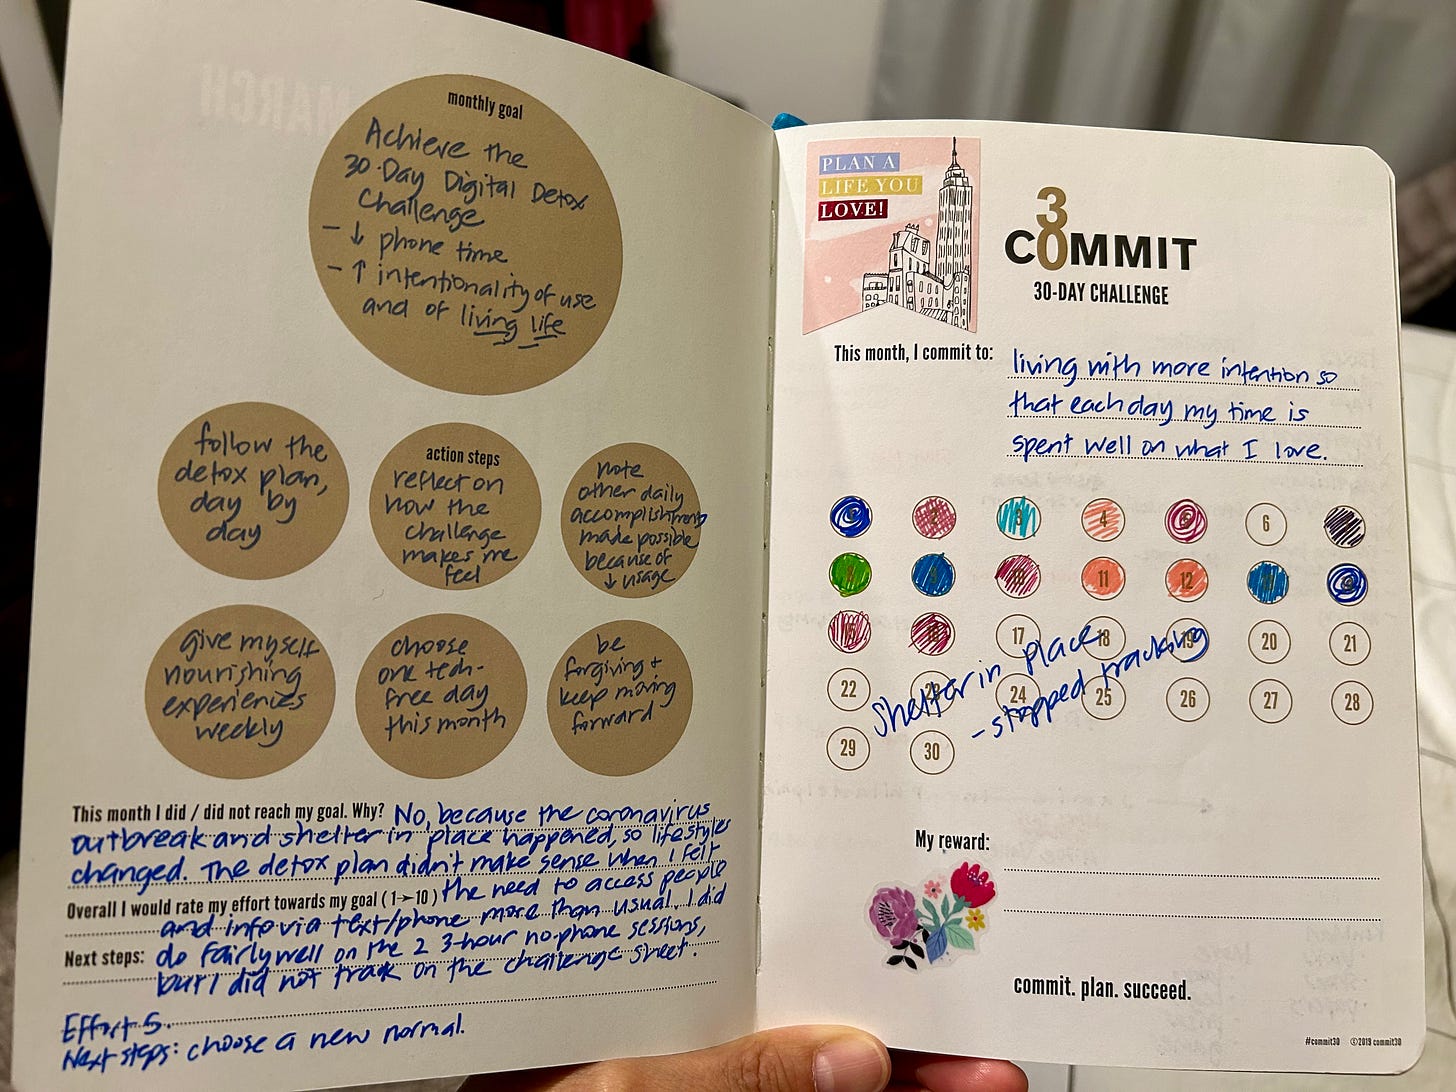 MARCH
monthly goal
Achieve the
30-Day Digital Detox
Challenge
- ↓ phone time
- ↑ intentionality of use
and of living life
follow the
detox plan,
day by
day
action steps
reflect on
how the
challenge
makes me
feel
note
other daily
accomplishments
made possible
because of
↓ usage
give myself
nourishing
experiences
weekly
choose
one tech-
free day
this month
be
forgiving +
keep moving
forward
This month I did / did not reach my goal. Why? No, because the coronavirus
outbreak and shelter in place happened, so lifestyles
changed. The detox plan didn't make sense when I felt
Overall I would rate my effort towards my goal (1→10) the need to access people
and info via text/phone more than usual. I did
Next steps: do fairly well on the 2 3-hour no-phone sessions,
but I did not track on the challenge sheet.
Effort 5.
Next steps: choose a new normal.
PLAN A
LIFE YOU
LOVE!
3
C0MMIT
30-DAY CHALLENGE
This month, I commit to: living with more intention so
that each day my time is
spent well on what I love.
2 3 4 5 6
8 9 10 11 12
15 16 17 18 19 20 21
22 23 24 25 26 27 28
29 30
shelter in place
- stopped tracking
My reward:
commit. plan. succeed.
#commit30 ©2019 commit30